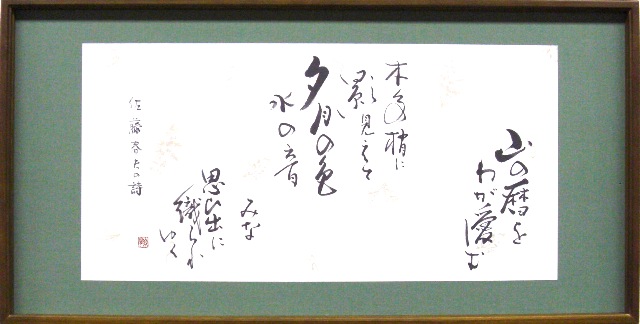 山の暦を
わが愛す
木々の梢に
影見えて
夕月の色
水の音
みな
思ひ出に
織られ
ゆく
佐藤春夫の詩